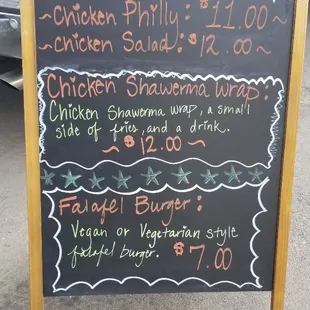 ~Chicken Philly: $11.00~
~Chicken Salad: $12.00~
Chicken Shawerma Wrap:
Chicken Shawerma wrap, a small
side of fries, and a drink.
~$12.00~
Falafel Burger:
Vegan or Vegetarian style
falafel burger. $7.00